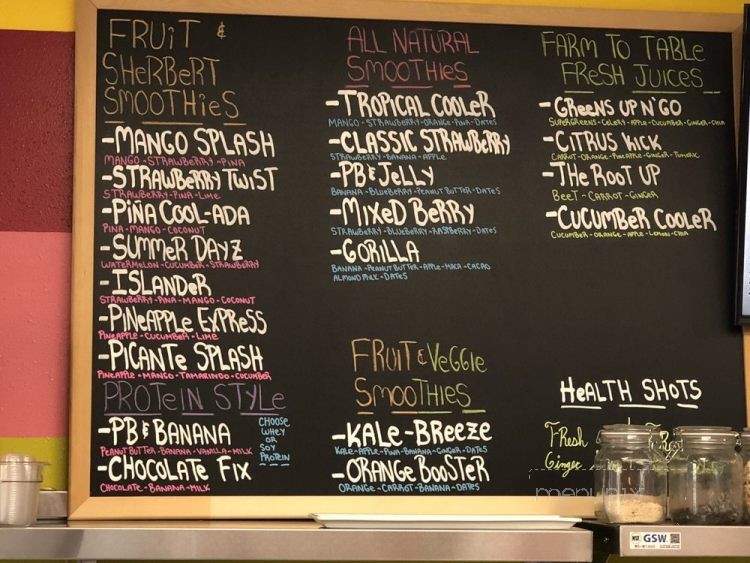 FRUIT &
SHERBERT
SMOOTHIES
-MANGO SPLASH
MANGO - STRAWBERRY - PINA
-STRAWBERRY TWIST
STRAWBERRY - PINA - LIME
-PIÑA COOL-ADA
PINA - MANGO - COCONUT
-SUMMER DAYZ
WATERMELON - CUCUMBER - STRAWBERRY
-ISLANDER
STRAWBERRY - PINA - MANGO - COCONUT
-PINEAPPLE EXPRESS
PINEAPPLE - CUCUMBER - LIME
-PICANTE SPLASH
PINEAPPLE - MANGO - TAMARINDO - CUCUMBER
PROTEIN STYLE
-PB & BANANA
PEANUT BUTTER - BANANA - VANILLA - MILK
-CHOCOLATE FIX
CHOCOLATE - BANANA - MILK
CHOOSE
WHEY
OR
SOY
PROTEIN
ALL NATURAL
SMOOTHIES
-TROPICAL COOLER
MANGO - STRAWBERRY - ORANGE - PINA - DATES
-CLASSIC STRAWBERRY
STRAWBERRY - BANANA - APPLE
-PB & JELLY
BANANA - BLUEBERRY - PEANUT BUTTER - DATES
-MIXED BERRY
STRAWBERRY - BLUEBERRY - RASPBERRY - DATES
-GORILLA
BANANA - PEANUT BUTTER - APPLE - MACA - CACAO
ALMOND MILK - DATES
FRUIT & VEGGIE
SMOOTHIES
-KALE-BREEZE
KALE - APPLE - PINA - BANANA - GINGER - DATES
-ORANGE BOOSTER
ORANGE - CARROT - BANANA - DATES
FARM TO TABLE
FRESH JUICES
-GREENS UP N' GO
SUPERGREENS - CELERY - APPLE - CUCUMBER - GINGER - CHIA
-CITRUS KICK
CARROT - ORANGE - PINEAPPLE - GINGER - TUMERIC
-THE ROOT UP
BEET - CARROT - GINGER
-CUCUMBER COOLER
CUCUMBER - ORANGE - APPLE - LEMON - CHIA
HEALTH SHOTS
Fresh
Ginger
menupix
GSW